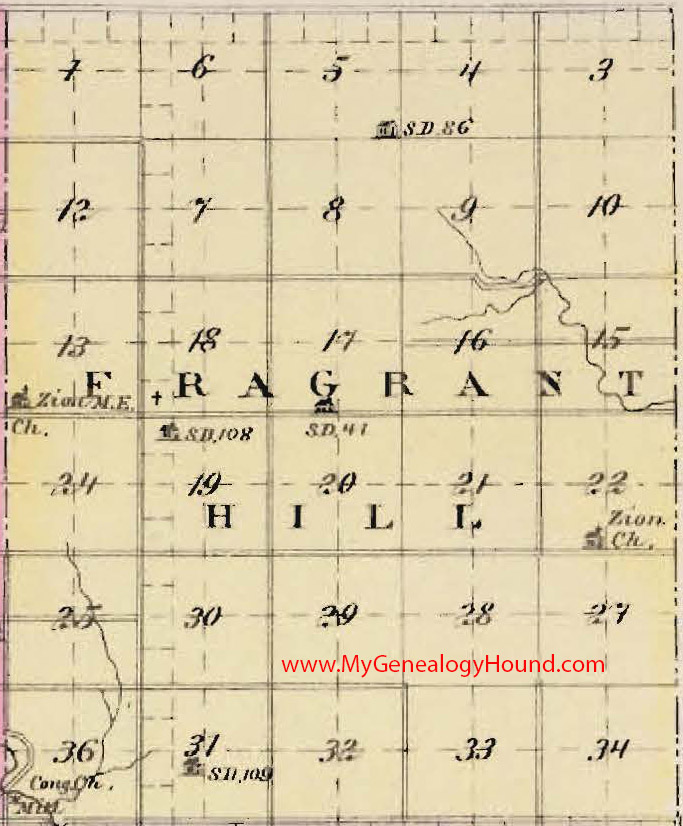 1 6 5 4 3
S.D. 86
12 7 8 9 10
13 18 17 16 15
FRAGRANT
Zion M.E.
Ch.
S.D. 108
S.D. 41
24 19 20 21 22
HILL
Zion
Ch.
25 30 29 28 27
www.MyGenealogyHound.com
36 31 32 33 34
S.D. 109
Cong. Ch.
Mill